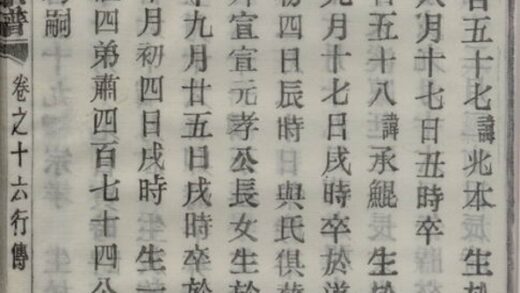 五十七諱兆本 生
月十七日丑時卒
五十八諱承鯤 生於
月十七日戌時卒於道
初四日辰時與氏俱葬
宣宣元孝公長女生於
年九月廿五日戌時卒於
月初四日戌時 生一
四弟肅四百七十四公
嗣
譜 卷之十六行傳